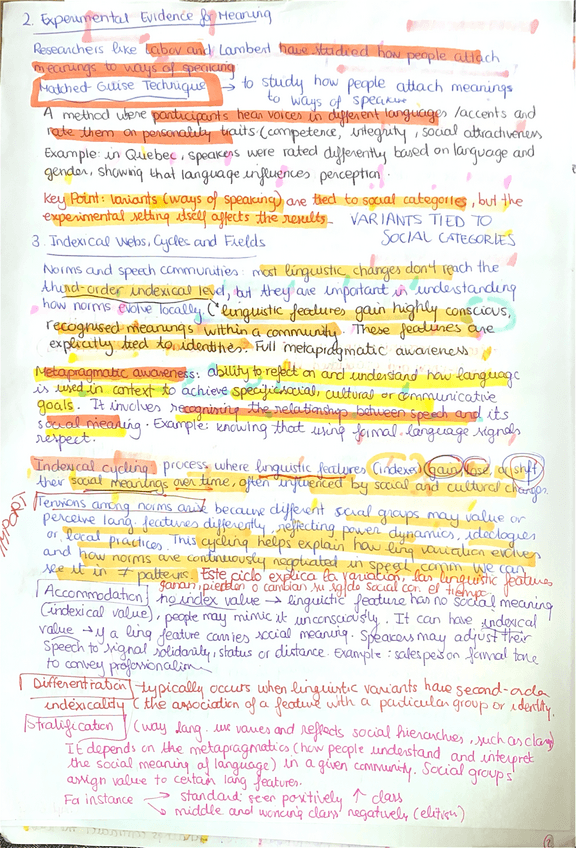 2. Experimental Evidence for Meaning
Researchers like Labov and Lambert have studied how people attach
meanings to ways of speaking
Matched Guise Technique → to study how people attach meanings
to ways of speaking
A method where participants hear voices in different languages/accents and
rate them on personality traits (competence, integrity, social attractiveness
Example: in Quebec, speakers were rated differently based on language and
gender, showing that language influences perception.
Key Point: variants (ways of speaking) are tied to social categories, but the
experimental setting itself affects the results. VARIANTS TIED TO
SOCIAL CATEGORIES
3. Indexical Webs, Cycles and Fields
Norms and speech communities: most linguistic changes don't reach the
third-order indexical level, but they are important in understanding
how norms evolve locally. (* linguistic features gain highly conscious,
recognised meanings within a community. These features are
explicitly tied to identities. Full metapragmatic awareness
Metapragmatic awareness: ability to reflect on and understand how language
is used in context to achieve specific social, cultural or communicative
goals. It involves recognising the relationship between speech and its
social meaning. Example: knowing that using formal language signals
respect.
Indexical cycling process where linguistic features (indexes) gain, lose, or shift
their social meanings over time, often influenced by social and cultural changes.
Tensions among norms arise because different social groups may value or
perceive lang. features differently, reflecting power dynamics, ideologies
or local practices. This cycling helps explain how ling variation evolves
and how norms are continuously negotiated in speech comm. We can
see it in 7 patterns. Este ciclo explica la variación, las linguistic features
ganan, pierden o cambian su sgdo social con el tiempo
Accommodation no index value → linguistic feature has no social meaning
(indexical value), people may mimic it unconsciously. It can have indexical
value → y a ling feature carries social meaning. Speakers may adjust their
speech to signal solidarity, status or distance. Example: salesperson formal tone
to convey professionalism
Differentiation typically occurs when linguistic variants have second-order
indexicality (the association of a feature with a particular group or identity.
Stratification (way lang. use varies and reflects social hierarchies, such as class)
It depends on the metapragmatics (how people understand and interpret
the social meaning of language) in a given community. Social groups
assign value to certain lang features.
For instance → standard: seen positively ↑ class
↘ middle and working class negatively (elitism)